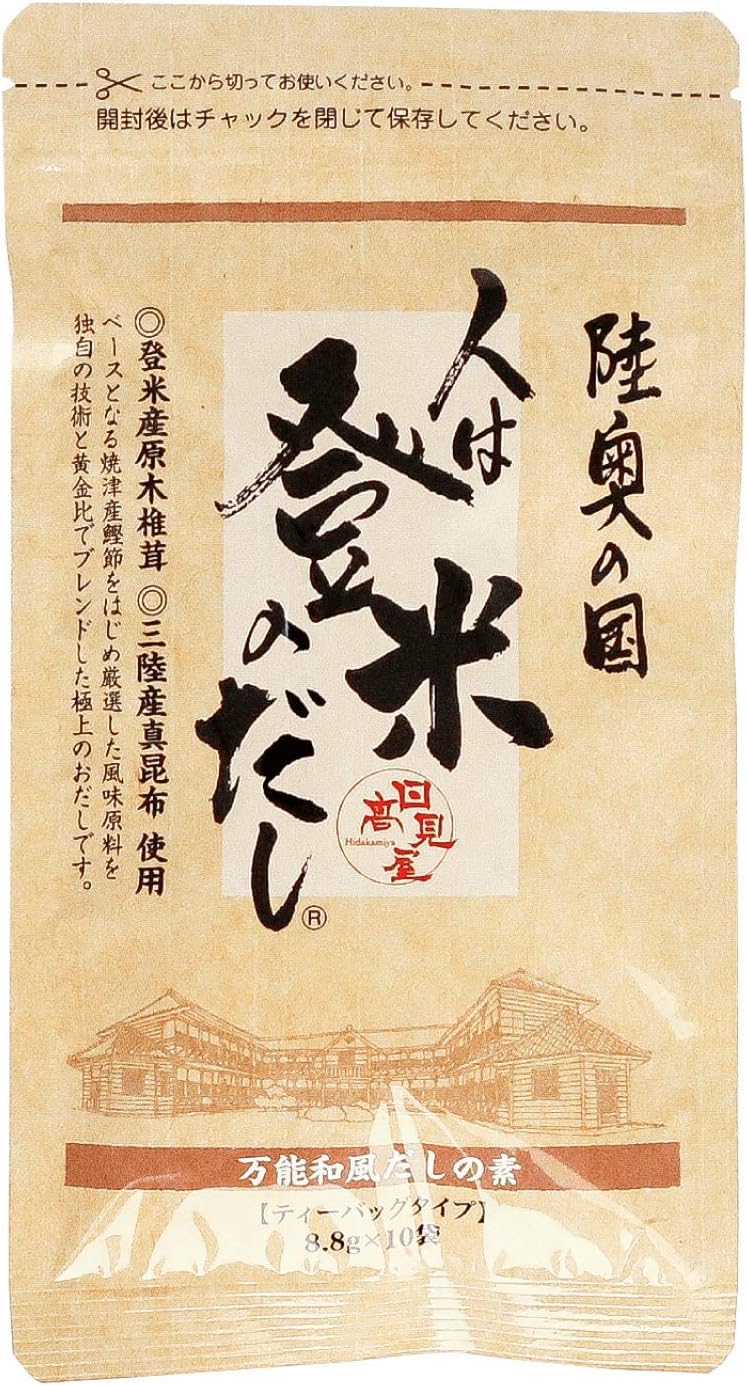 ここから切ってお使いください。
開封後はチャックを閉じて保存してください。
陸奥の国
人は
登米
のだし®
日髙見屋
Hidakamiya
◎登米産原木椎茸 ◎三陸産真昆布 使用
ベースとなる焼津産鰹節をはじめ厳選した風味原料を
独自の技術と黄金比でブレンドした極上のおだしです。
万能和風だしの素
【ティーバッグタイプ】
8.8g×10袋